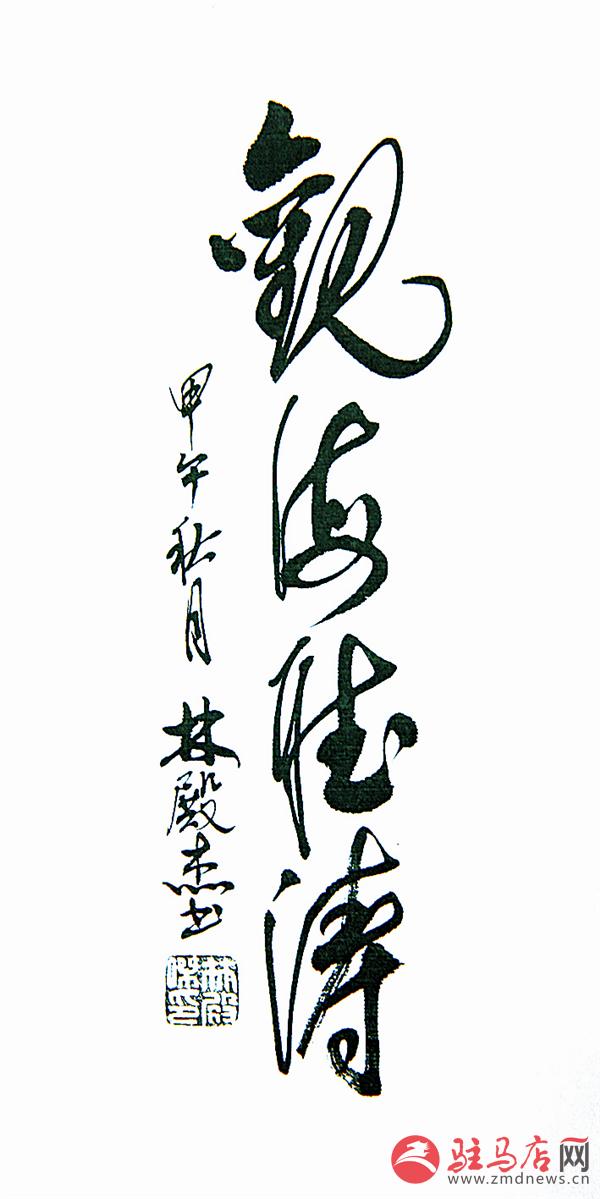 觀海聽濤
甲午秋月
林殿杰书
林殿杰印
驻马店网
www.zmdnews.cn